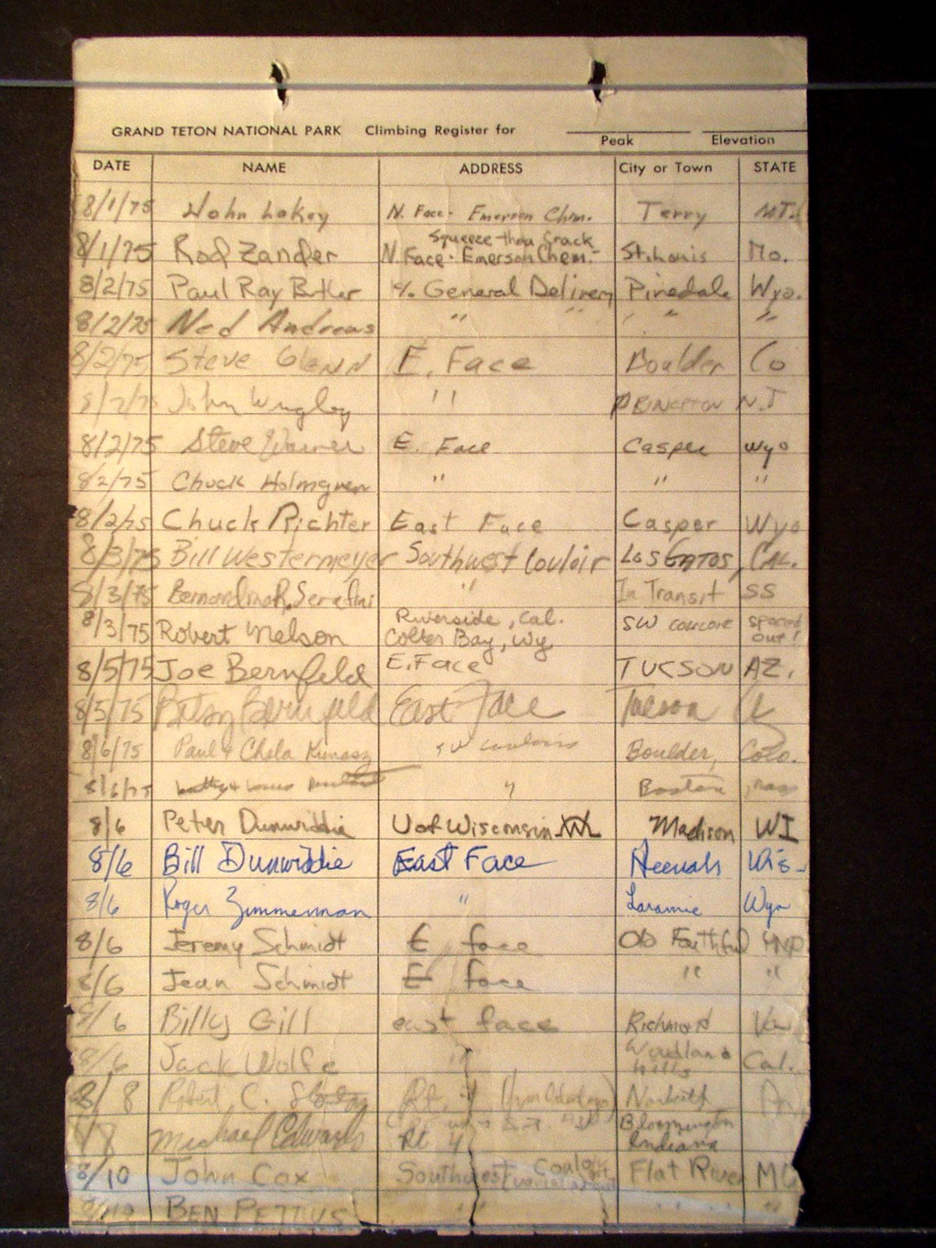 GRAND TETON NATIONAL PARK Climbing Register for
Peak Elevation
DATE NAME ADDRESS City or Town STATE
8/1/75 John Lokey N. Face - Emerson Chim. Terry MT.
Squeeze thru Crack
8/1/75 Rod Zander N. Face - Emerson Chem. St. Louis Mo.
8/2/75 Paul Ray Butler % General Delivery Pinedale Wyo.
8/2/75 Ned Andrews " " " " "
8/2/75 Steve Glenn E. Face Boulder Co
John " PRINCETON N.J
8/2/75 Steve E. Face Casper wyo
8/2/75 Chuck Holmgren " " "
8/2/75 Chuck Richter East Face Casper Wyo
8/3/75 Bill Westermeyer Southwest Couloir LOS GATOS, CAL.
8/3/75 " In Transit SS
Riverside, Cal. spaced
8/3/75 Robert Nelson Colter Bay, Wy SW out!
8/5/75 Joe Bernfeld E. Face TUCSON AZ.
8/5/75 Betsy Bernfeld East Face Tucson
8/6/75 Paul & Chela Boulder, Colo.
8/6/75 " Boston
8/6 Peter Dunwiddie U of Wisconsin Madison WI
8/6 Bill Dunwiddie East Face Neenah Wis-
8/6 Roger Zimmerman " Laramie Wyo
8/6 Jeremy Schmidt E face Old Faithful YNP
8/6 Jean Schmidt E face " "
8/6 Billy Gill east face Richmond Va
8/6 Jack Wolfe " Woodland Hills Cal.
8/8 Robert C.
Michael Edwards Rt 4 Bloomington Indiana
8/10 John Cox Southwest Flat River
BEN PETTUS " " " "